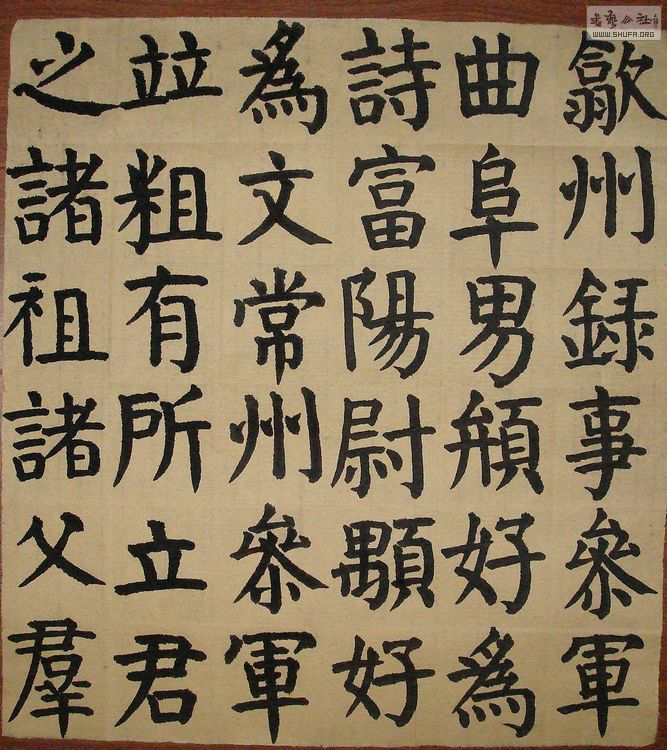 歙州録事叅軍
曲阜男頩好為
詩富陽尉顒好
為文常州叅軍
竝粗有所立君
之諸祖諸父羣
書藝公社
WWW.SHUFA.ORG